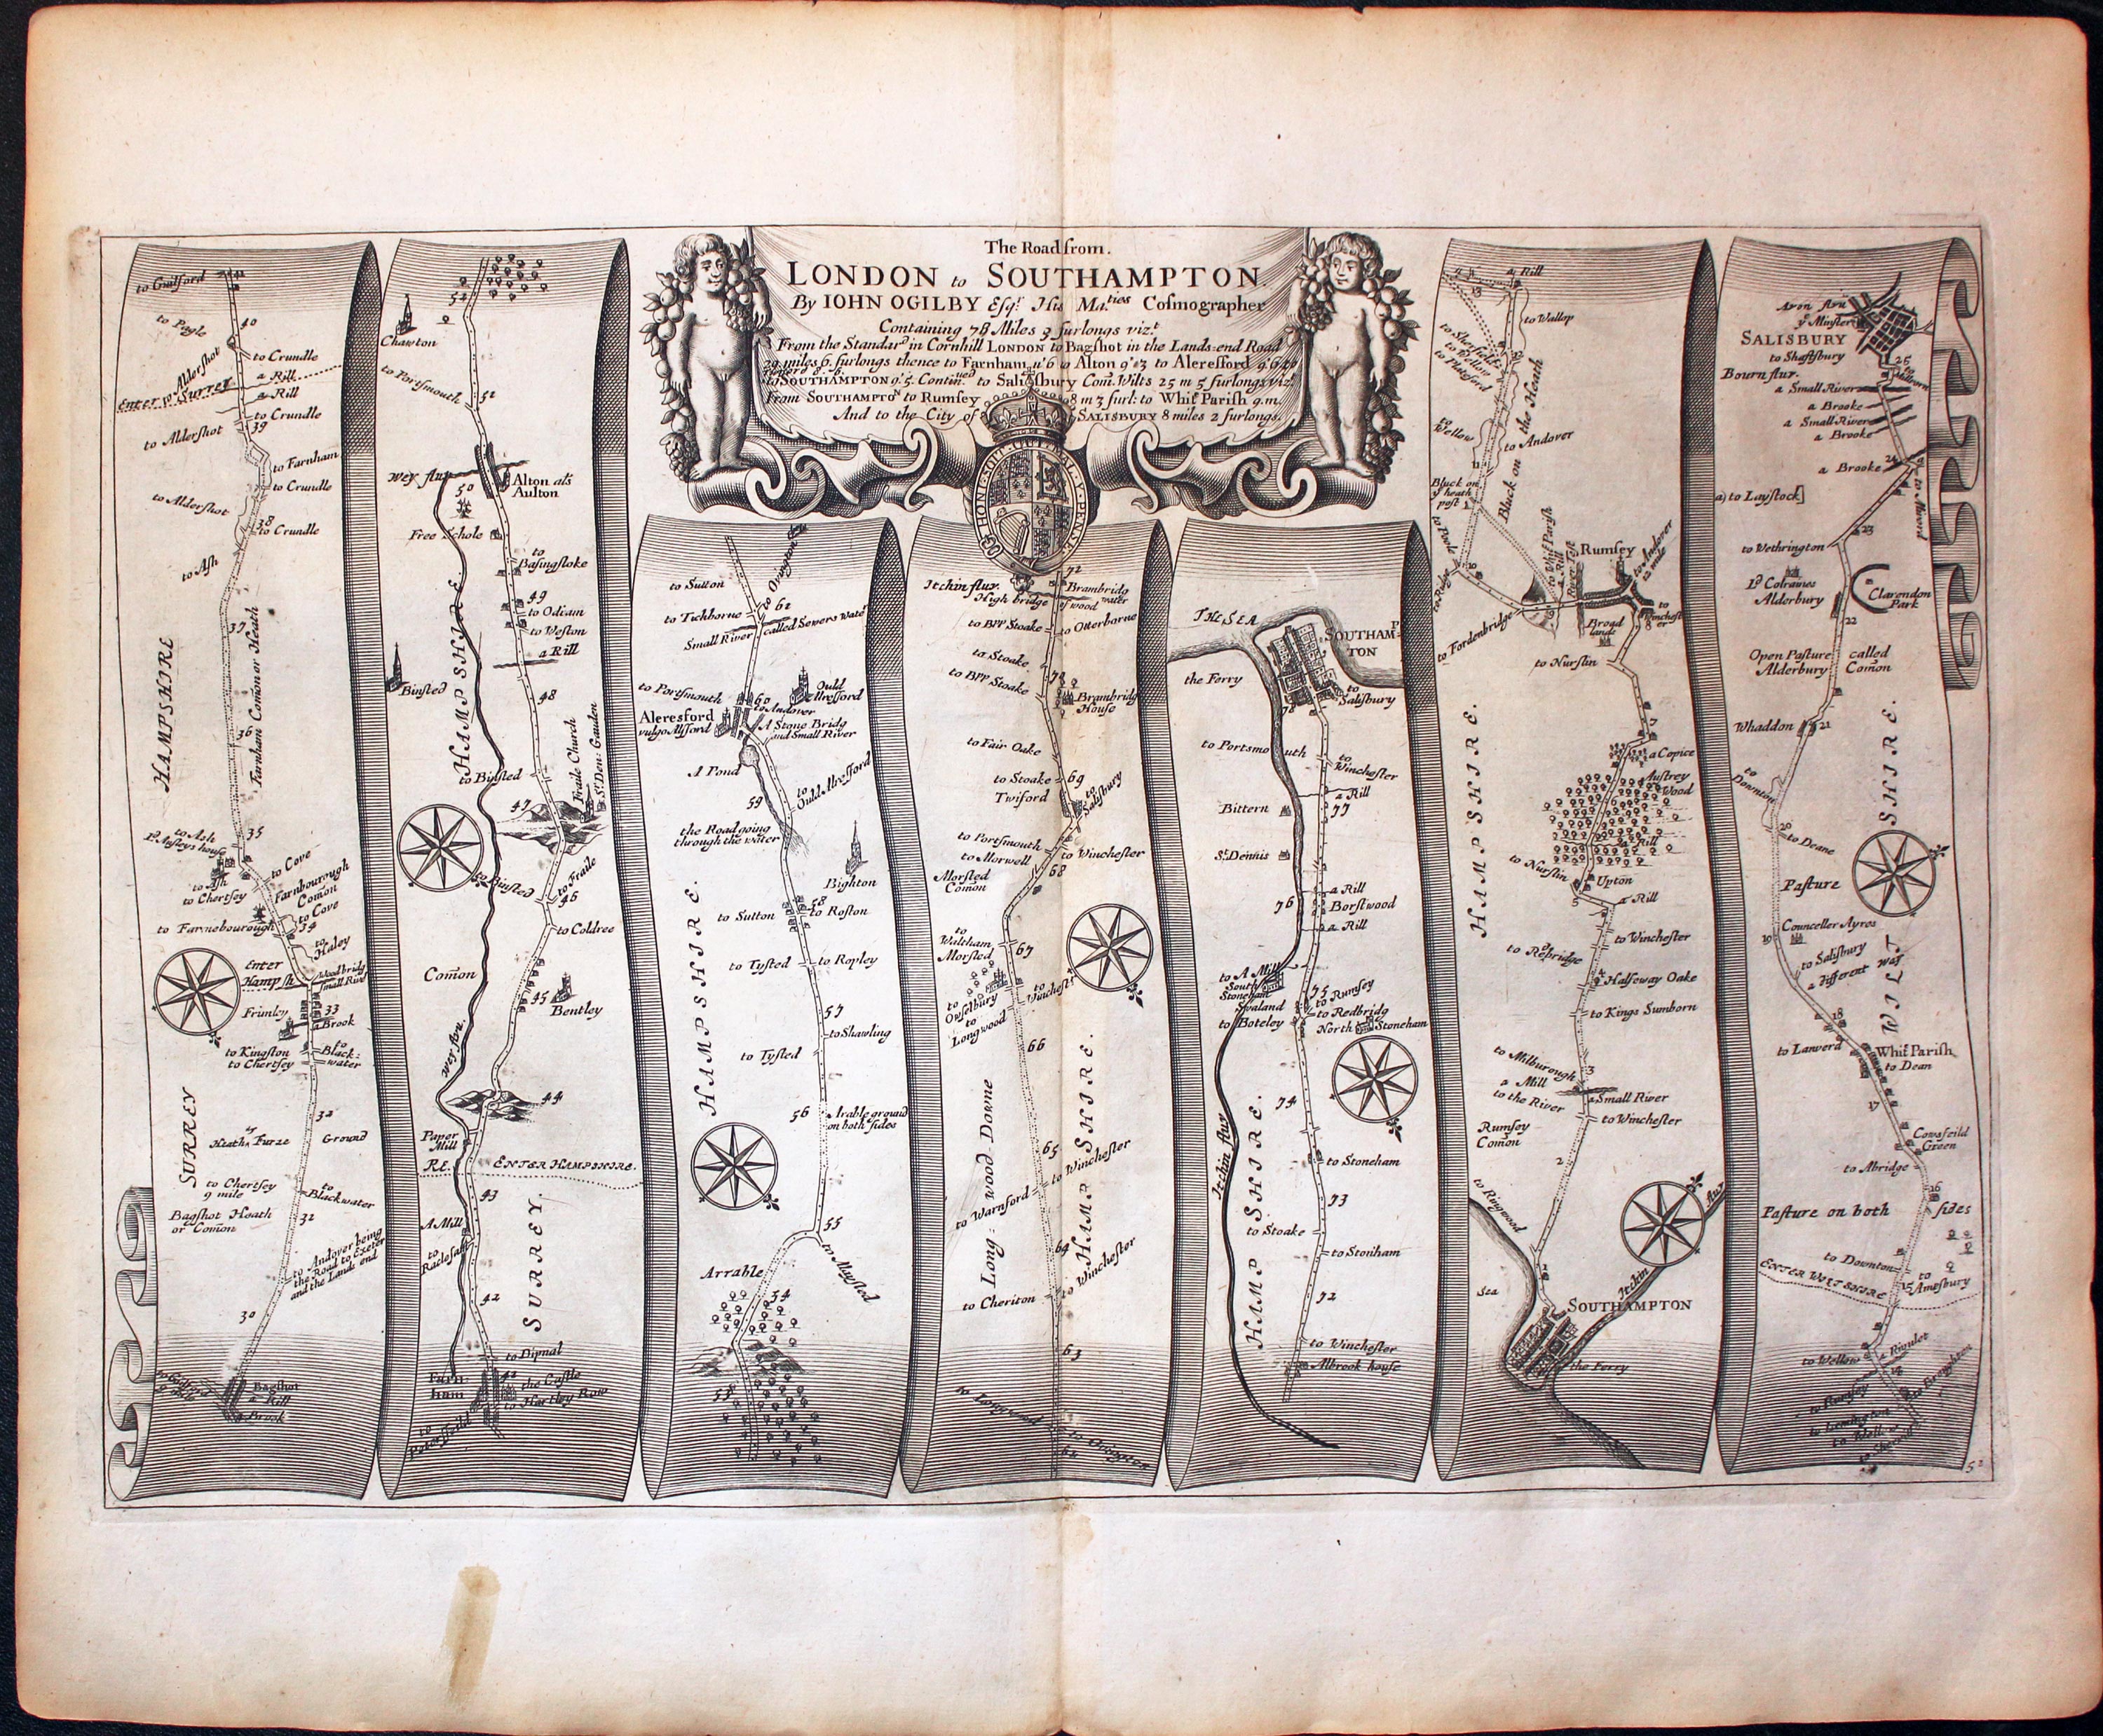 The Road from.
LONDON to SOUTHAMPTON.
By IOHN OGILBY Esqr. His Ma.ties Cosmographer
Containing 78 Miles 3 furlongs viz.t
From the Standard in Cornhill LONDON to Bagshot in the Lands-end Road
29 miles 6 furlongs thence to Farnham
to Alton to Aleresford
to SOUTHAMPTON 9'5. Contin.ued to Salisbury Com. Wilts 25 m 5 furlongs viz.t
From SOUTHAMPTON to Rumsey 8 m 3 furl: to Whit Parish 9 m.
And to the City of SALISBURY 8 miles 2 furlongs.
HONI SOIT QUI MAL Y PENSE
to Guilford
41
40
to Crundle
a Rill
to Aldershot
Enter to Surrey
a Rill
to Crundle
39
to Aldershot
to Farnham
to Crundle
to Aldershot
38
to Crundle
to Ash
37
Farnham Comon or Heath
HAMPSHIRE
36
35
to Ash
to Cove
to Ash
to Chertsey
Farnbourough Comon
to Cove
34
to Farnebourough
to Haley
Enter Hampsh
Woodbridg
Small River
Frimley
33
a Brook
to Kingston
to Chertsey
to Black:water
32
Heath & Furze
Ground
SURREY
to Chertsey
9 mile
to Blackwater
Bagshot Heath
or Comon
32
to Andover being
the Road to Exeter
and the Lands end
30
Bagshot
a Rill
a Brook
52
Chawton
to Portsmouth
51
Wey flu
Alton als
Aulton
50
Free Schole
to Basingstoke
49
to Odiam
to Weston
a Rill
Binsted
48
HAMPSHIRE.
Fraile Church
St Den: Gauden
to Binsted
47
to Binsted
to Fraile
46
to Coldree
Comon
45
Bentley
Wey flu.
44
Paper
Mill
RE.
ENTER HAMPSHIRE.
43
A Mill
SURREY.
42
to Dipnal
Farn-
ham
41
the Castle
to Hartley Row
to Petersfeild
to Sutton
to Ovington
61
to Tichborne
Small River
called Sowers Water
to Portsmouth
Ould
Alresford
60
to Andover
Aleresford
vulgo Alsford
A Stone Bridg
and Small River
A Pond
to Ould Alresford
59
the Road going
through the water
Bighton
58
to Sutton
to Roston
to Tysted
to Ropley
57
to Shawling
to Tysted
HAMPSHIRE.
56
Arable ground
on both sides
55
to Maysted
Arrable
54
53
72
Itchin flur.
High bridge
Brambridg
wood water
to BPP Stoake
to Otterborne
to Stoake
to BPP Stoake
Brambridg
House
to Fair Oake
to Stoake
69
Twiford
to Salisbury
to Portsmouth
to Morwell
to Winchester
68
Morsted
Comon
to
Waltham
Morsted
67
to Winchester
to Owselbury
to Longwood
66
Long-wood Downe
65
to Winchester
to Warnford
HAMP SHIRE.
64
to Winchester
to Cheriton
63
to Longwood
to Ovington
62
THE SEA
SOUTHAMP
TON
the Ferry
to
Salisbury
78
to Portsmouth
to
Winchester
a Rill
Bittern
77
St Dennis
a Rill
76
Borstwood
a Rill
to A Mill
South
Stoneham
75
to Rumsey
Swaland
to Redbridg
to Boteley
North Stoneham
74
Itchin flur
to Stoneham
73
to Stoake
to Stonham
HAMP SHIRE.
72
to Winchester
Albrook house
a Rill
13
to Wallop
to Sherfeild
to Wellow
to Platford
Bluck on the Heath
to Wellow
to Andover
11
Bluck on
y heath
post
to Poole
to Whit Parish
a Rill
River Test
Rumsey
to Andover
12 mile
to Ridge
10
to Winchester
to Fordenbridge
Broad
lands
8
to Nurslin
7
a Copice
Austrey
Wood
a Rill
to Nurslin
Upton
5
a Rill
to Winchester
to Redbridge
4
Halfeway Oake
to Kings Sumborn
to Milburough
a Mill
to the River
3
a Small River
to Winchester
Rumsey
Comon
HAMPSHIRE.
2
to Ringwood
Sea
Itchin flur
SOUTHAMPTON
the Ferry
Avon flu
y Minster
SALISBURY
to Shaftsbury
25
Bourn flur.
a Small River
a Brooke
a Small River
a Brooke
24
a Brooke
a) to Laystock]
23
to Wethrington
Ld Colraines
Alderbury
Clarendon
Park
22
Open Pasture called
Alderbury Comon
Whaddon
21
to Downton
20
to Deane
Pasture
Councellor Ayres
19
to Salisbury
a different way
18
to Lanverd
Whit Parish
to Dean
17
Cowsfeild
Green
to Abridge
16
WILT SHIRE.
Pasture on both sides
to Downton
ENTER WILT SHIRE
15
to Amesbury
to Wellow
a Rivulet
14
to Broughton
to Rumsey
to Lemington
52